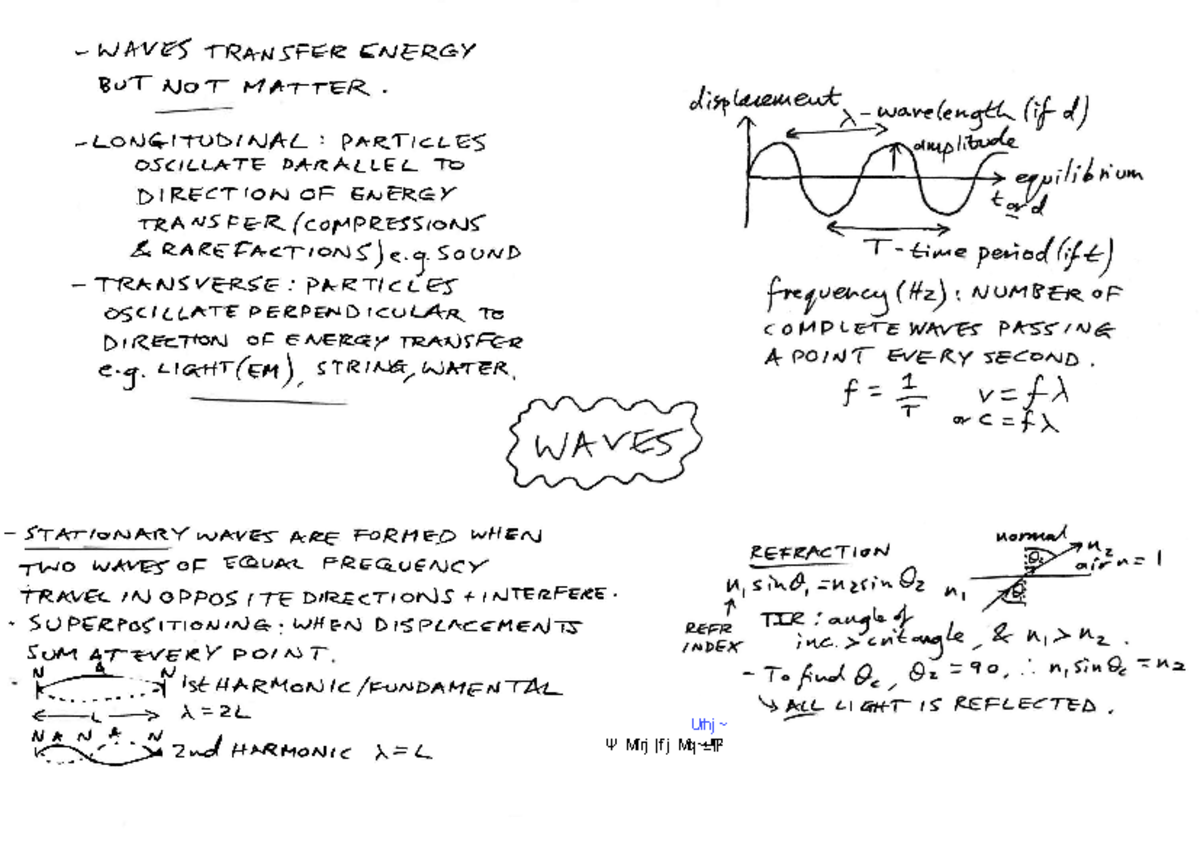 - WAVES TRANSFER ENERGY
BUT NOT MATTER.
- LONGITUDINAL: PARTICLES
OSCILLATE PARALLEL TO
DIRECTION OF ENERGY
TRANSFER (COMPRESSIONS
& RAREFACTIONS) e.g. SOUND
- TRANSVERSE: PARTICLES
OSCILLATE PERPENDICULAR TO
DIRECTION OF ENERGY TRANSFER
e.g. LIGHT (EM), STRING, WATER.
displacement
λ - wavelength (if d)
amplitude
equilibrium
t or d
T - time period (if t)
frequency (Hz): NUMBER OF
COMPLETE WAVES PASSING
A POINT EVERY SECOND.
f = 1/T v = fλ
or c = fλ
WAVES
- STATIONARY WAVES ARE FORMED WHEN
TWO WAVES OF EQUAL FREQUENCY
TRAVEL IN OPPOSITE DIRECTIONS + INTERFERE.
· SUPERPOSITIONING: WHEN DISPLACEMENTS
SUM AT EVERY POINT.
N A N
· 1st HARMONIC/FUNDAMENTAL
L λ = 2L
N A N A N
2nd HARMONIC λ = L
REFRACTION
n₁ sinθ₁ = n₂ sinθ₂
↑
REFR
INDEX
normal
n₂
air n = 1
n₁
TIR: angle of
inc. > crit angle, & n₁ > n₂.
- To find θc, θ₂ = 90, ∴ n₁ sinθc = n₂
↳ ALL LIGHT IS REFLECTED.